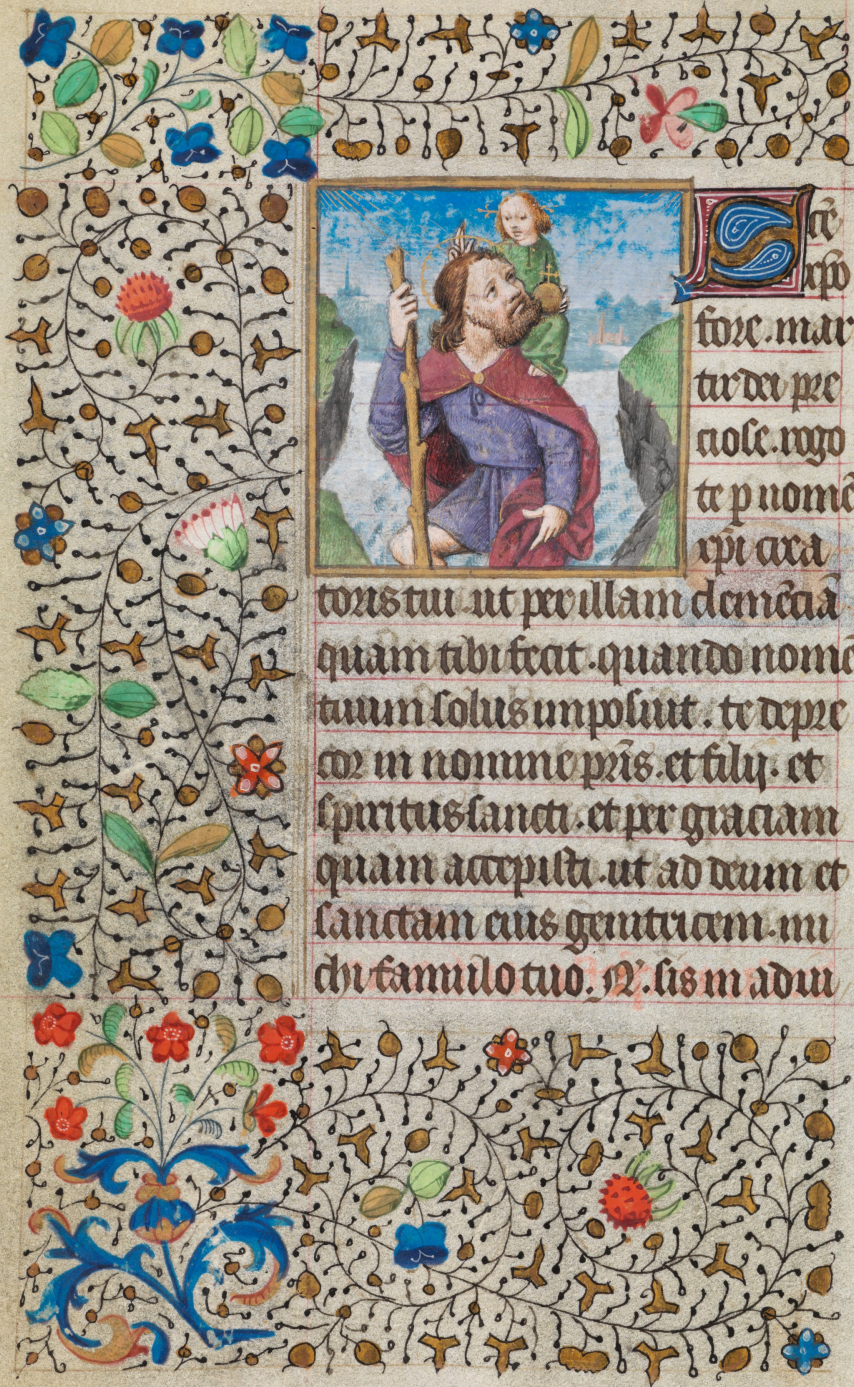 Sc̄e
xp̄o
fore . mar
tir dei pre
ciose . rogo
te p nomē
xp̄i crea
toris tui . ut per illam clemēciā
quam tibi fecit . quando nomē
tuum solus imposuit . te depre
cor in nomine pr̄is . et filij . et
spiritus sancti . et per graciam
quam accepisti . ut ad deum et
sanctam eius genitricem . mi
chi famulo tuo . N . sis in adiu